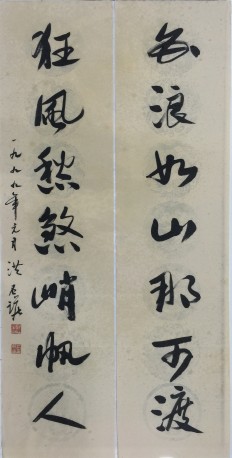 白浪如山那可渡
狂風愁煞峭帆人
一九九九年元月 洪丕謨